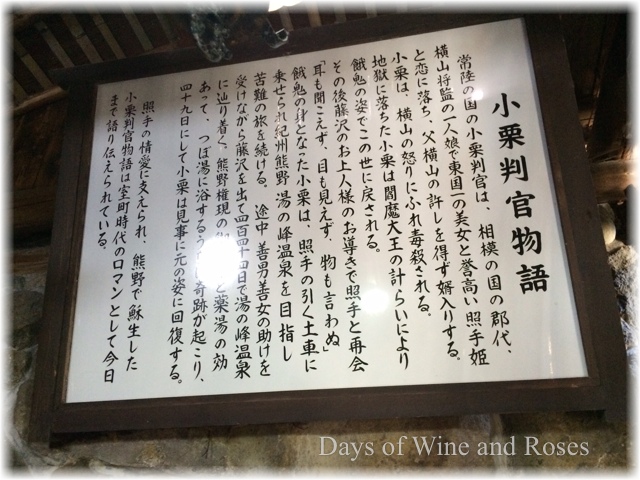 小栗判官物語
常陸の国の小栗判官は、相模の国の郡代、
横山将監の一人娘で東国一の美女と誉高い照手姫
と恋に落ち、父横山の許しを得ず婿入りする。
小栗は、横山の怒りにふれ毒殺される。
地獄に落ちた小栗は閻魔大王の計らいにより
餓鬼の姿でこの世に戻される。
その後藤沢のお上人様のお導きで照手と再会
「耳も聞こえず、目も見えず、物も言わぬ」
餓鬼の身となった小栗は、照手の引く土車に
乗せられ紀州熊野 湯の峰温泉を目指し
苦難の旅を続ける。途中 善男善女の助けを
受けながら藤沢を出て四百四十四日で湯の峰温泉
に辿り着く。熊野権現の と薬湯の効
あって、つぼ湯に浴する 奇跡が起こり、
四十九日にして小栗は見事に元の姿に回復する。
照手の情愛に支えられ、熊野で蘇生した
小栗判官物語は室町時代のロマンとして今日
まで語り伝えられている。
Days of Wine and Roses